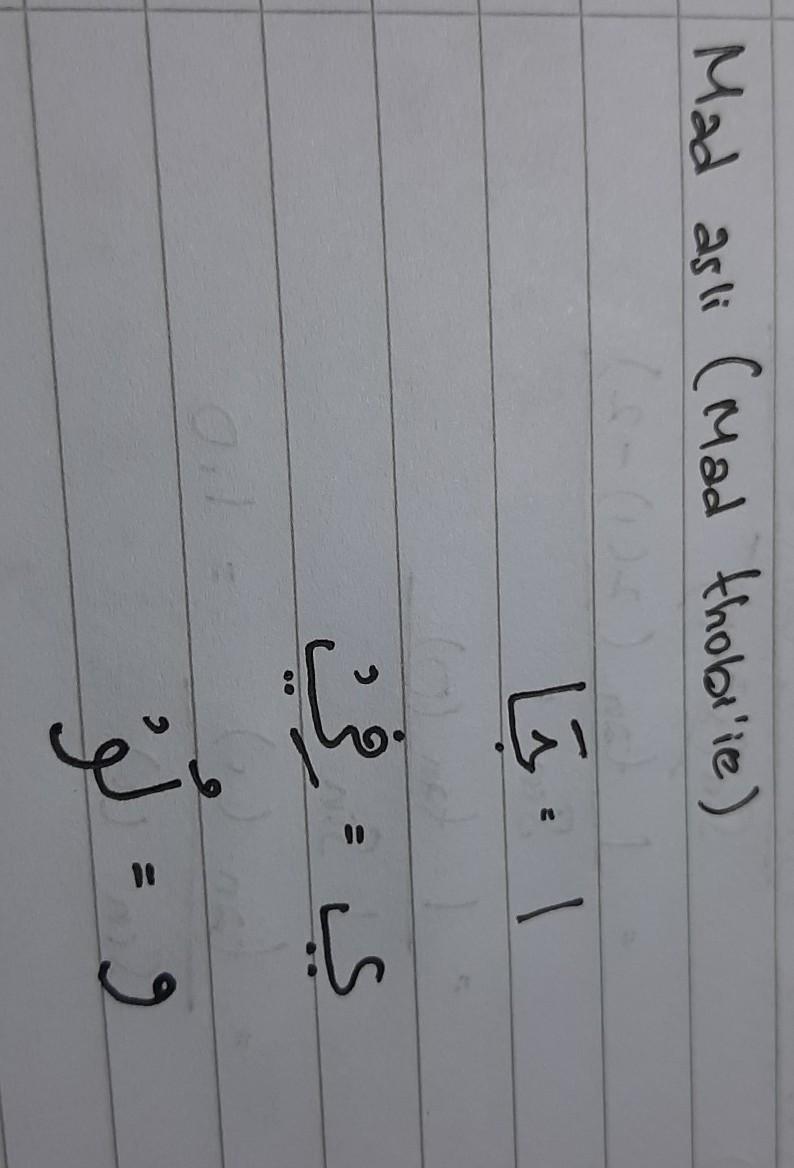 Mad asli (Mad thobi'ie)
جَا = ا
فِيْ = ي
لُوْ = و